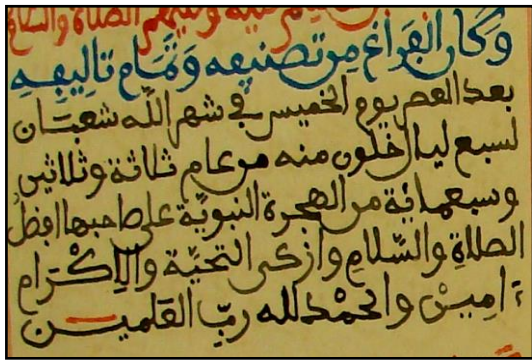 وعليهم الصلاة والسلام
وكان الفراغ من تصنيفه وتمام تاليفه
بعد العصر يوم الخميس في شهر الله شعبان
لسبع ليال خلون منه من عام ثلاثة وثلاثين
وسبعمائة من الهجرة النبويّة على صاحبها افضل
الصلاة والسّلام وازكى التحيّة والإكْرام
ءامينْ والحمْد لله ربّ العلمين